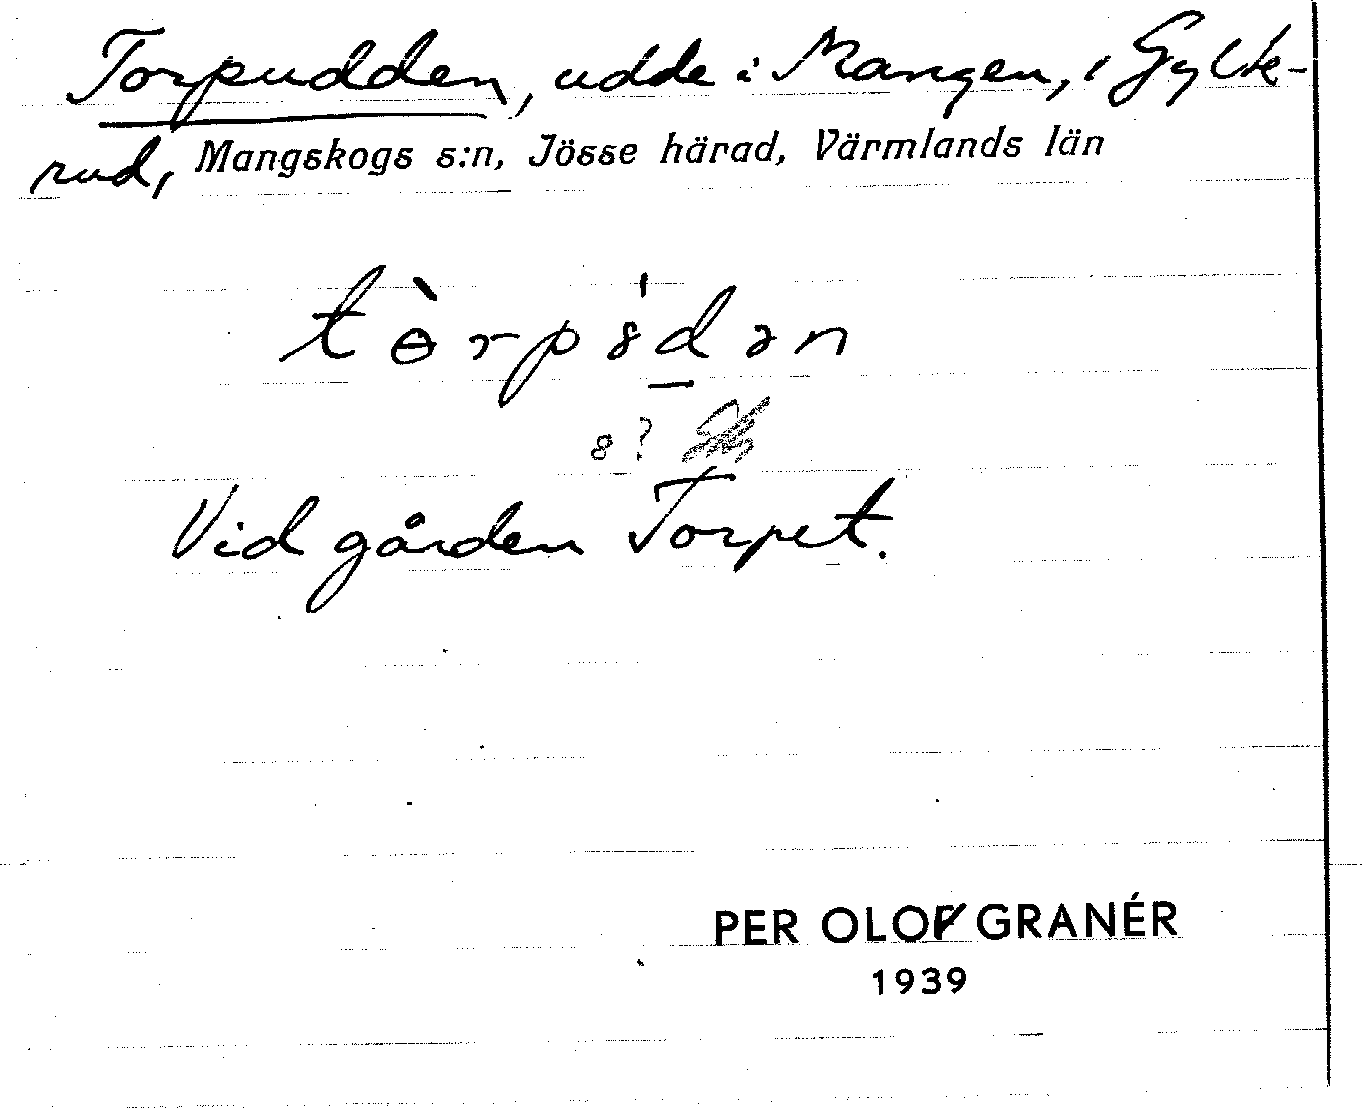 Torpudden, udde i Mangen, i Gylte-
rud, Mangskogs s:n, Jösse härad, Värmlands län
tɵ̀rpȣ́dən
8 ?
Vid gården Torpet.
PER OLOF GRANÉR
1939